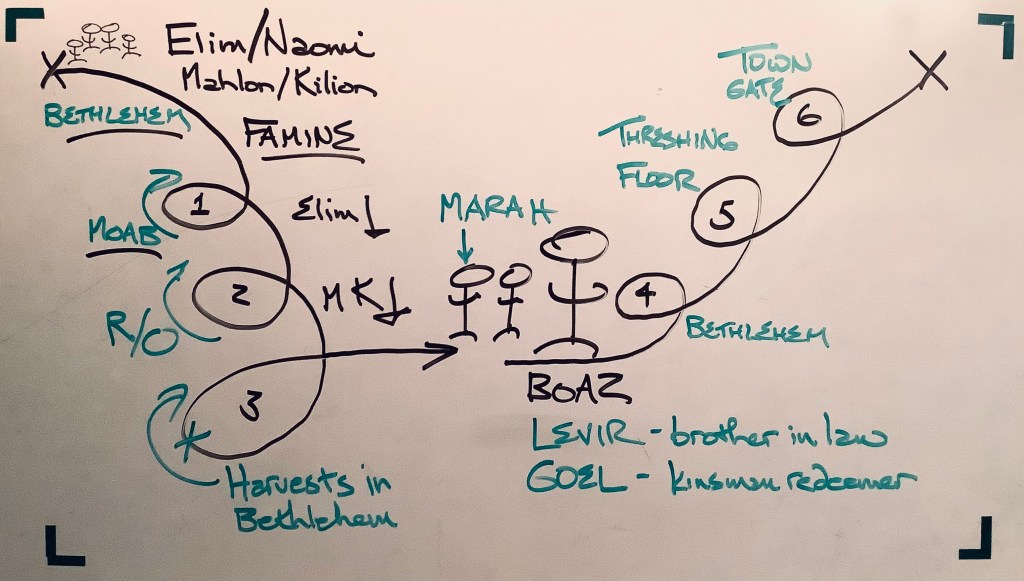 Elim/Naomi
Mahlon/Kilion
BETHLEHEM
FAMINE
1
Elim ↓
MOAB
2
M K ↓
R/O
3
Harvests in
Bethlehem
MARAH
BOAZ
4
BETHLEHEM
5
THRESHING
FLOOR
6
TOWN
GATE
LEVIR - brother in law
GOEL - kinsman redeemer